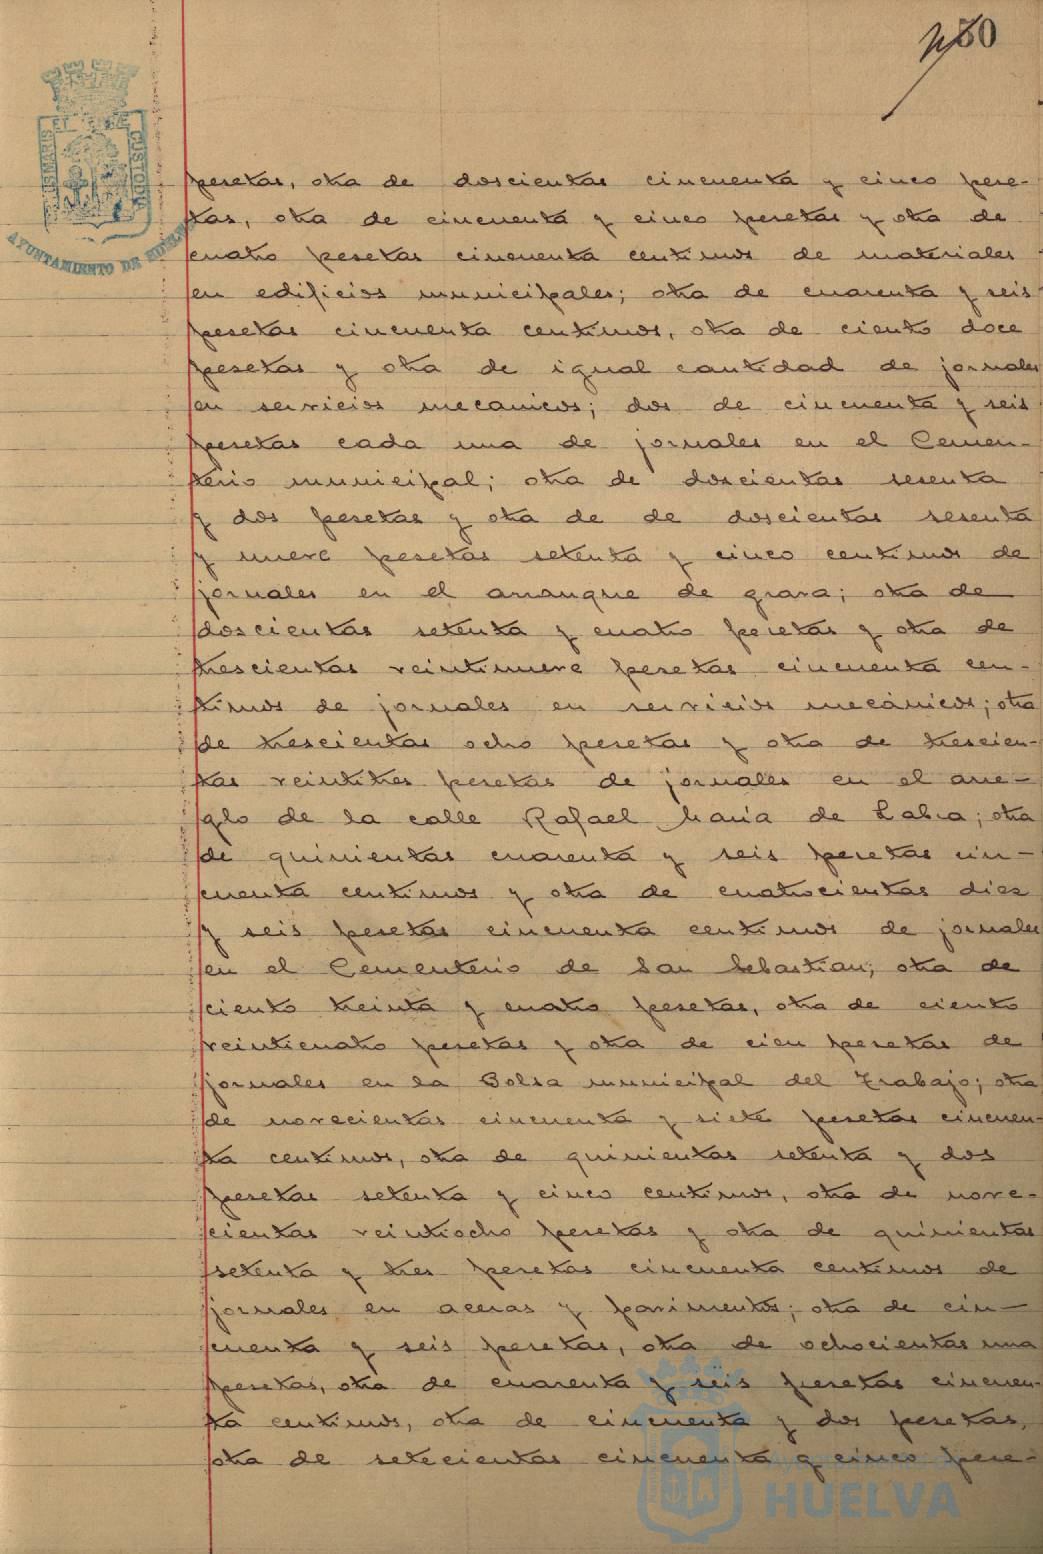 50
PORTUS MARIS ET TERRÆ CUSTODIA
AYUNTAMIENTO DE HUELVA
pesetas, otra de doscientas cincuenta y cinco pese-
tas, otra de cincuenta y cinco pesetas y otra de
cuatro pesetas cincuenta centimos de materiales
en edificios municipales; otra de cuarenta y seis
pesetas cincuenta centimos, otra de ciento doce
pesetas y otra de igual cantidad de jornales
en servicios mecanicos; dos de cincuenta y seis
pesetas cada una de jornales en el Cemen-
terio municipal; otra de doscientas sesenta
y dos pesetas y otra de de doscientas sesenta
y nueve pesetas setenta y cinco centimos de
jornales en el arranque de grava; otra de
doscientas setenta y cuatro pesetas y otra de
trescientas veintinueve pesetas cincuenta cen-
timos de jornales en servicios mecánicos; otra
de trescientas ocho pesetas y otra de trescien-
tas veintitres pesetas de jornales en el arre-
glo de la calle Rafael María de Labra; otra
de quinientas cuarenta y seis pesetas cin-
cuenta centimos y otra de cuatrocientas diez
y seis pesetas cincuenta centimos de jornales
en el Cementerio de San Sebastian; otra de
ciento treinta y cuatro pesetas, otra de ciento
veinticuatro pesetas y otra de cien pesetas de
jornales en la Bolsa municipal del Trabajo; otra
de novecientas cincuenta y siete pesetas cincuen-
ta centimos, otra de quinientas setenta y dos
pesetas setenta y cinco centimos, otra de nove-
cientas veintiocho pesetas y otra de quinientas
setenta y tres pesetas cincuenta centimos de
jornales en aceras y pavimentos; otra de cin-
cuenta y seis pesetas, otra de ochocientas una
pesetas, otra de cuarenta y seis pesetas cincuen-
ta centimos, otra de cincuenta y dos pesetas,
otra de setecientas cincuenta y cinco pese-
HUELVA